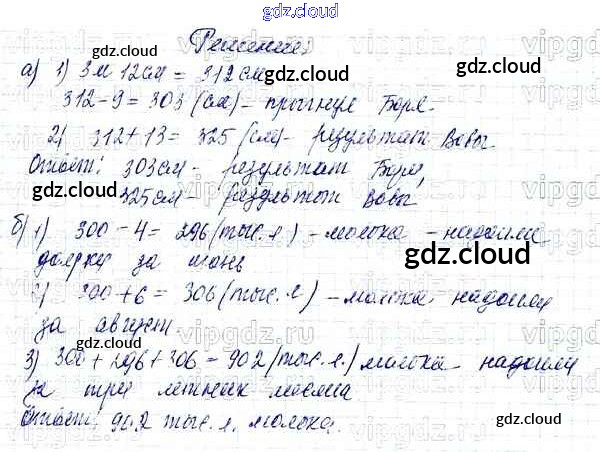 gdz.cloud
Решение:
а) 1) 3м 12см = 312см
312-9 = 303 (см) - прыгнул Боря.
2) 312+13 = 325 (см) - результат Вовы
Ответ: 303см - результат Бори,
325см - результат Вовы
б) 1) 300 - 4 = 296 (тыс. л) - молока - надоили
доярки за июнь
2) 300 + 6 = 306 (тыс. л) - молока надоили
за август.
3) 300 + 296 + 306 = 902 (тыс. л.) молока надоили
за три летних месяца
Ответ: 902 тыс. л. молока.
gdz.cloud
gdz.cloud
gdz.cloud
gdz.cloud
gdz.cloud
gdz.cloud
gdz.cloud
gdz.cloud